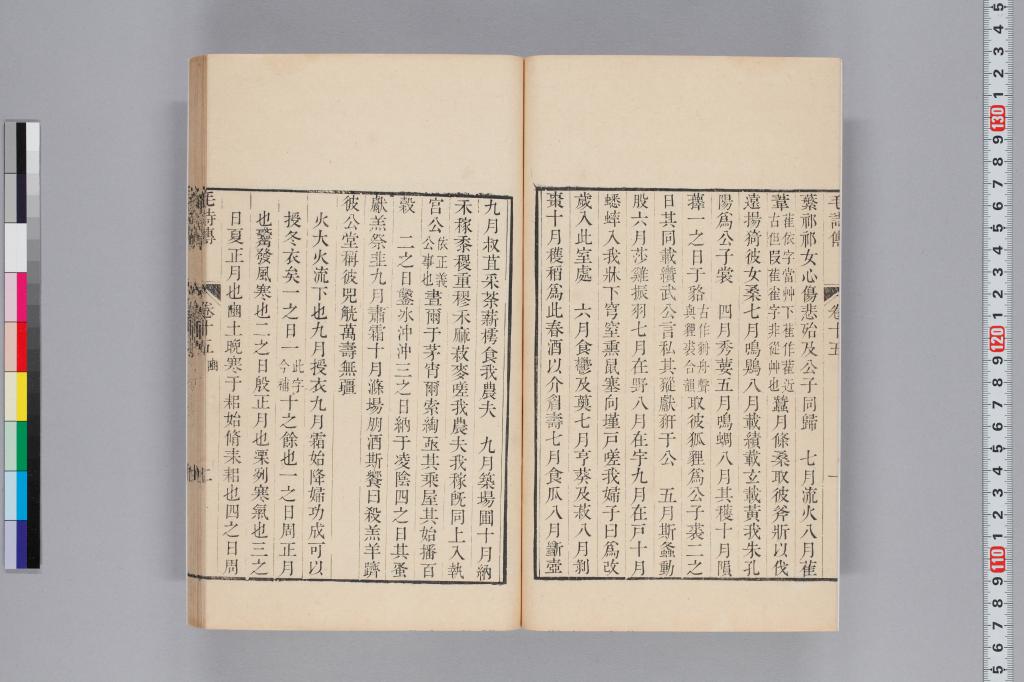 蘩祁祁女心傷悲殆及公子同歸　七月流火八月萑
葦萑依字當艸下萑作雚近古但叚萑雚字非從艸也蠶月條桑取彼斧斨以伐
遠揚猗彼女桑七月鳴鵙八月載績載玄載黃我朱孔
陽爲公子裳　四月秀葽五月鳴蜩八月其穫十月隕
蘀一之日于貉取彼狐貍爲公子裘二之
日其同載纘武公言私其豵獻豜于公　五月斯螽動
股六月莎雞振羽七月在野八月在宇九月在戸十月
蟋蟀入我牀下穹窒熏鼠塞向墐戸嗟我婦子曰爲改
歲入此室處　六月食鬱及薁七月亨葵及菽八月剝
棗十月穫稻爲此春酒以介眉壽七月食瓜八月斷壺
毛詩傳　卷十五　一
九月叔苴采荼薪樗食我農夫　九月築場圃十月納
禾稼黍稷重穋禾麻菽麥嗟我農夫我稼旣同上入執
宮公依正義公事也晝爾于茅宵爾索綯亟其乘屋其始播百
穀　二之日鑿冰沖沖三之日納于凌陰四之日其蚤
獻羔祭韭九月肅霜十月滌場朋酒斯饗曰殺羔羊躋
彼公堂稱彼兕觥萬壽無疆
火大火流下也九月授衣九月霜始降婦功成可以
授冬衣矣一之日一此字今補十之餘也一之日周正月
也觱發風寒也二之日殷正月也栗洌寒氣也三之
日夏正月也豳土晚寒于耜始脩耒耜也四之日周
毛詩傳　卷十五　豳　二